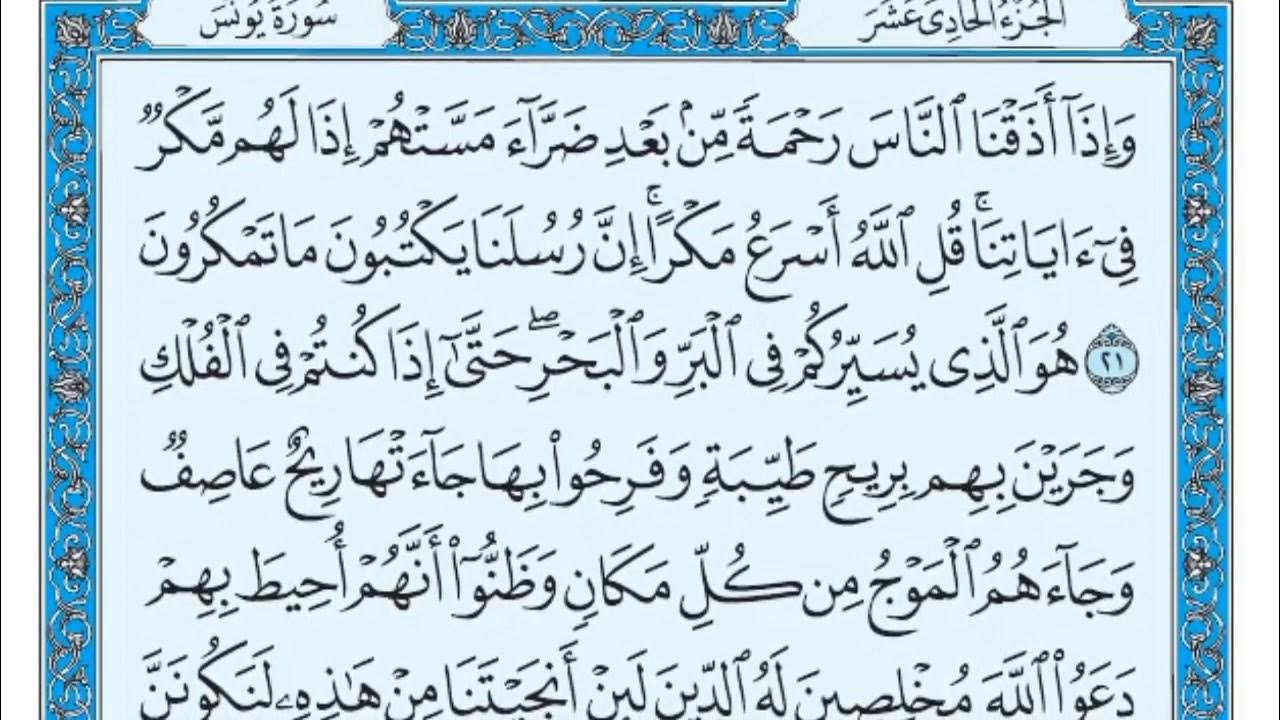 الجُزْءُ الحَادِى عَشَرَ
سُورَةُ يُونُسَ
وَإِذَآ أَذَقْنَا ٱلنَّاسَ رَحْمَةً مِّنۢ بَعْدِ ضَرَّآءَ مَسَّتْهُمْ إِذَا لَهُم مَّكْرٌ
فِىٓ ءَايَاتِنَاۚ قُلِ ٱللَّهُ أَسْرَعُ مَكْرًاۚ إِنَّ رُسُلَنَا يَكْتُبُونَ مَا تَمْكُرُونَ
٢١ هُوَ ٱلَّذِى يُسَيِّرُكُمْ فِى ٱلْبَرِّ وَٱلْبَحْرِۖ حَتَّىٰٓ إِذَا كُنتُمْ فِى ٱلْفُلْكِ
وَجَرَيْنَ بِهِم بِرِيحٍ طَيِّبَةٍ وَفَرِحُوا۟ بِهَا جَآءَتْهَا رِيحٌ عَاصِفٌ
وَجَآءَهُمُ ٱلْمَوْجُ مِن كُلِّ مَكَانٍ وَظَنُّوٓا۟ أَنَّهُمْ أُحِيطَ بِهِمْ
دَعَوُا۟ ٱللَّهَ مُخْلِصِينَ لَهُ ٱلدِّينَ لَئِنْ أَنجَيْتَنَا مِنْ هَٰذِهِۦ لَنَكُونَنَّ